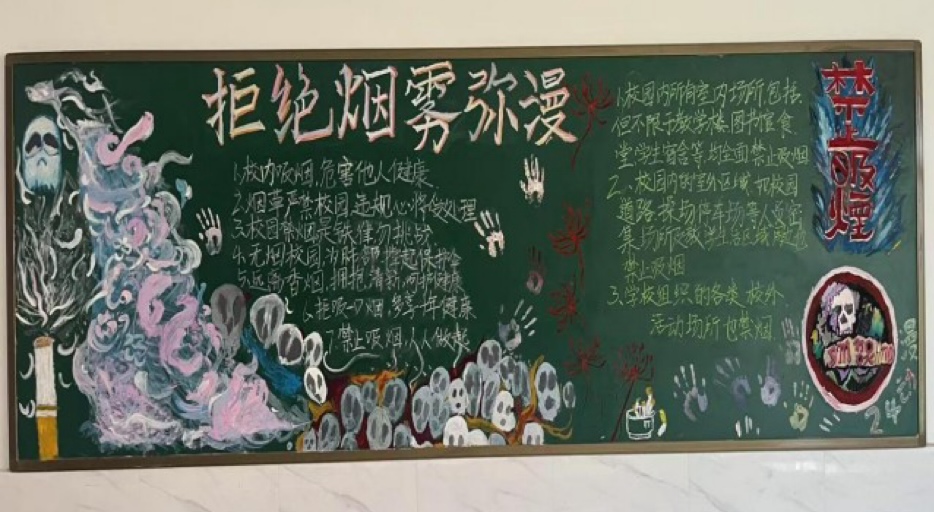 拒绝烟雾弥漫
1.校内吸烟,危害他人健康
2.烟草严禁校园,违规必将做处理
3.校园禁烟是铁律勿挑战
4.无烟校园,为肺撑起保护伞
5.远离香烟,拥抱清新,呵护健康
6.拒吸一口烟,多享十年健康
7.禁止吸烟,人人做起
1.校园内所有室内场所,包括
但不限于教学楼、图书馆、食
堂、学生宿舍等,均全面禁止吸烟
2、校园内的室外区域,如校园
道路、操场、停车场等人员密
集场所及学生活动区域
禁止吸烟
3.学校组织的各类校外
活动场所也禁烟
禁止吸烟